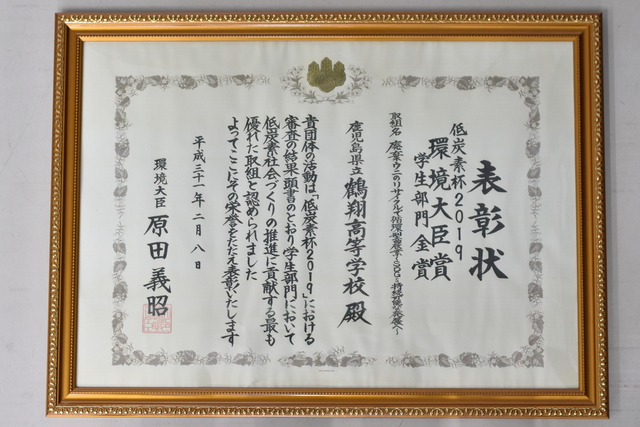 表彰状
低炭素杯2019
環境大臣賞
学生部門金賞
取組名 廃棄ウニのリサイクルで循環型農業
鹿児島県立 鶴翔高等学校 殿
貴団体の活動は「低炭素杯2019」における
審査の結果頭書のとおり学生部門において
低炭素社会づくりの推進に貢献する最も
優れた取組と認められました
よってここにその栄誉をたたえ表彰いたします
平成三十一年二月八日
環境大臣 原田義昭